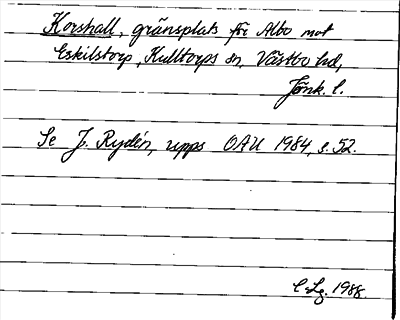 Korshall, gränsplats för Albo mot
Eskilstorp, Kulltorps sn, Västbo hd,
Jönk. l.
Se J. Rydén, upps OAU 1984, s. 52.
C Lg. 1988.